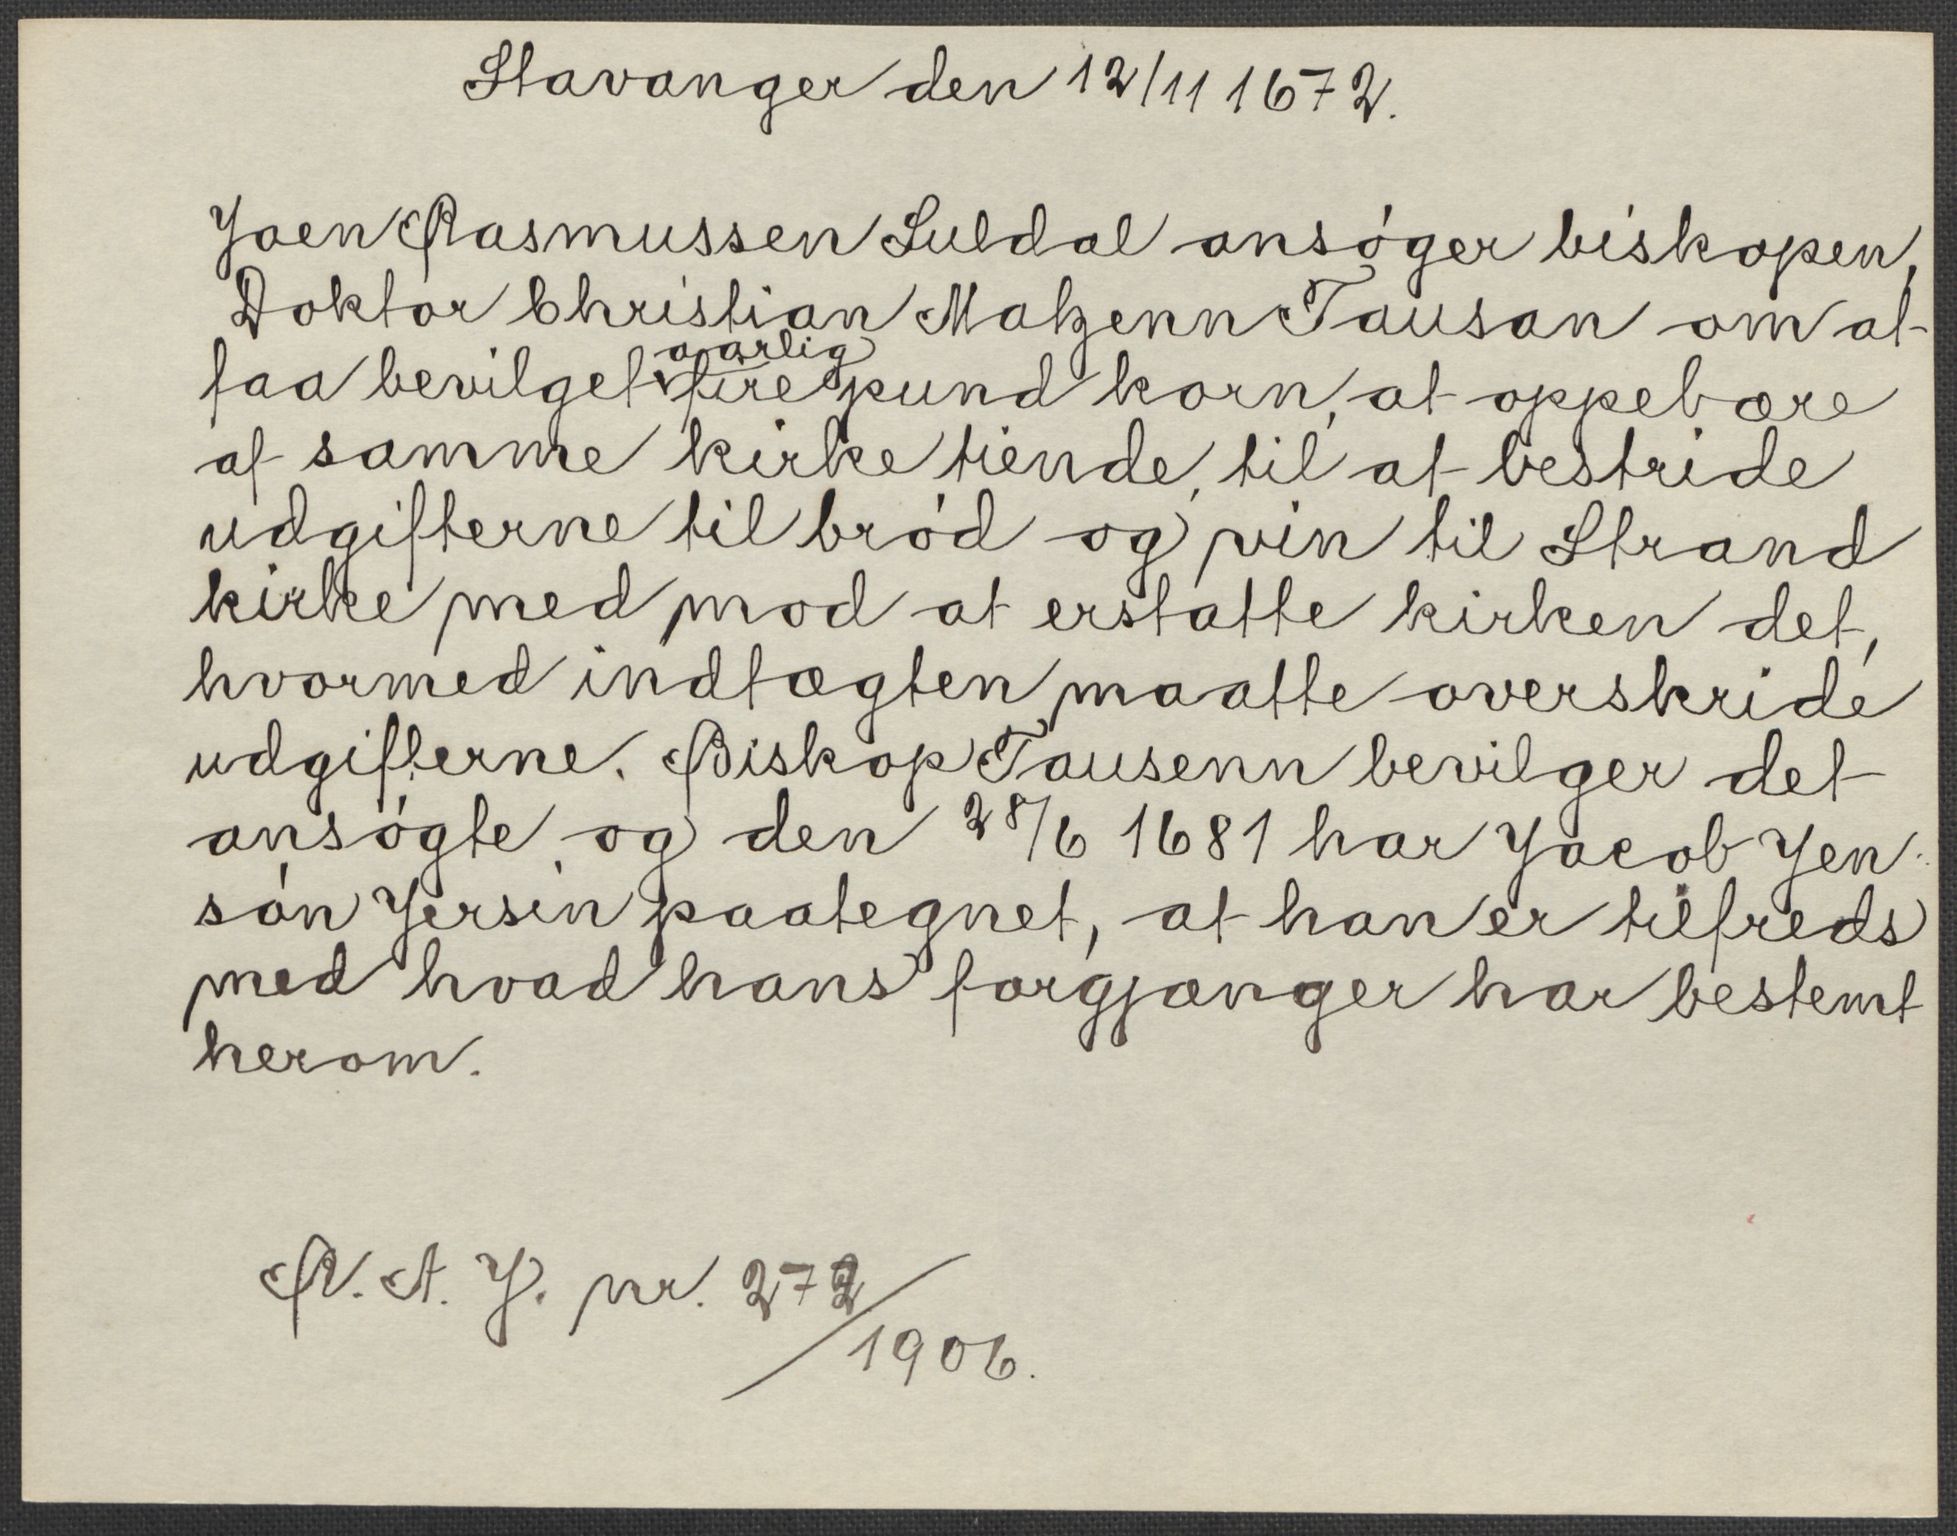 Stavanger den 12/11 1672.
Joen Rasmussen Suldal ansóger biskopen,
Doktor Christian Matzenn Tausan om at
faa bevilget aarlig fire pund korn, at oppebære
af samme kirketiende, til at bestride
udgifterne til bród og vin til Strand
kirke med mod at erstatte kirken det,
hvormed indtægten maatte overskride
udgifterne. Biskop Tausenn bevilger det
ansógte, og den 28/6 1681 har Jacob Jen-
són Jersin paategnet, at han er tilfreds
med hvad hans forgjænger har bestemt
herom.
R. A. J. nr. 272/1906.